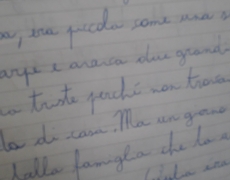 era piccola come una s
arpe e aveva due grandi
triste perché non trova
di casa. Ma un giorno
dalla famiglia che la a
era